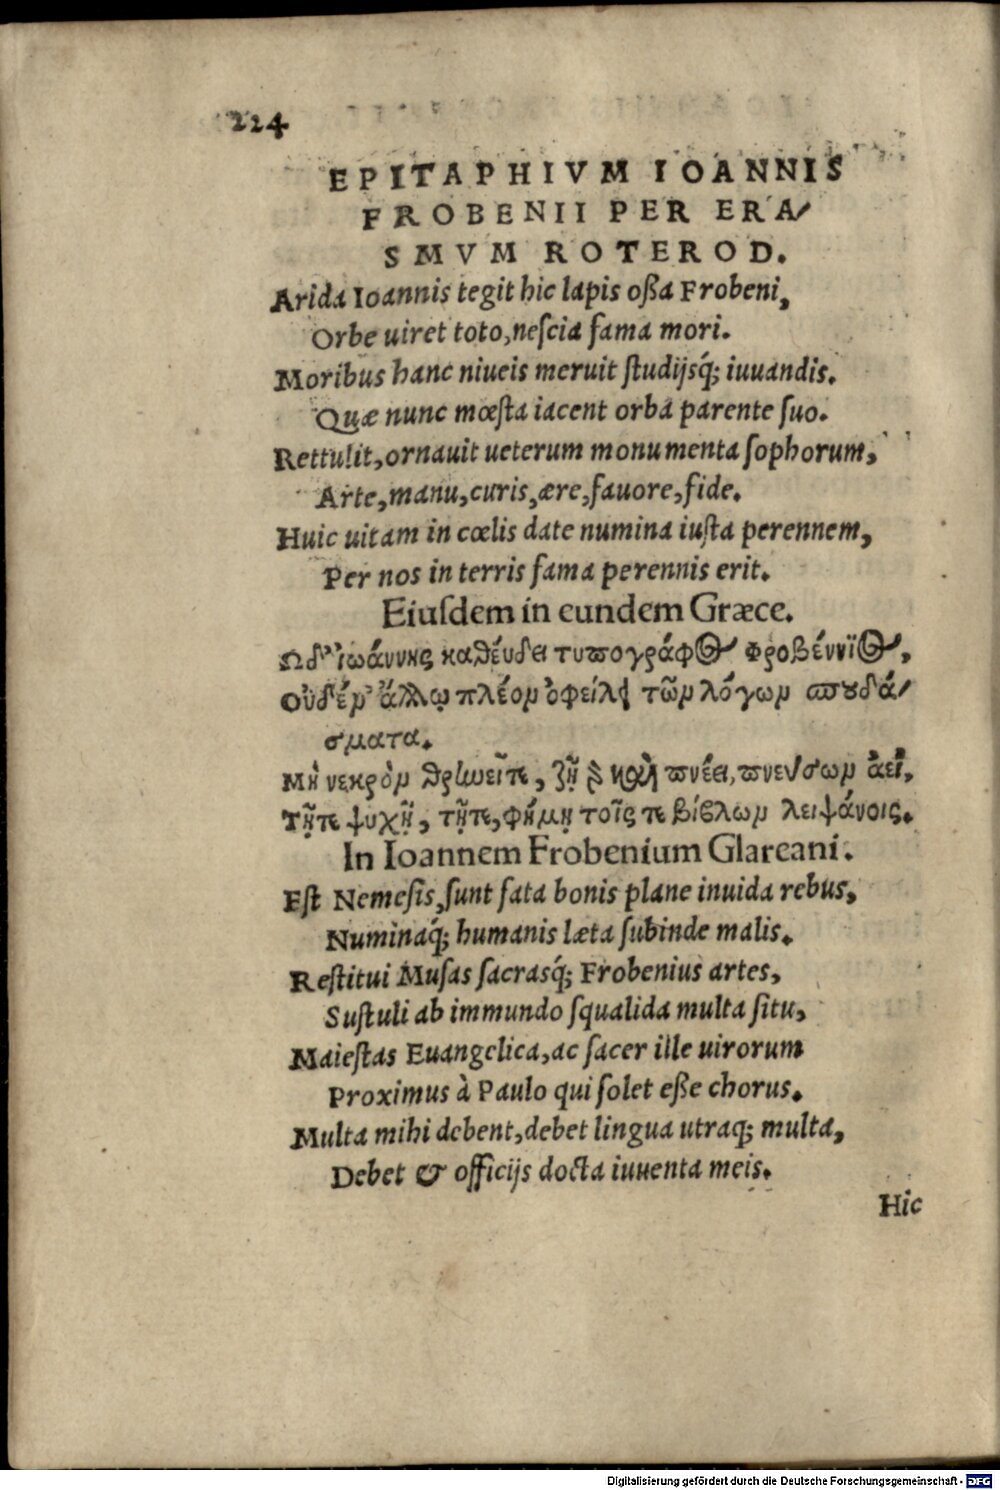 224
EPITAPHIVM IOANNIS
FROBENII PER ERA/
SMVM ROTEROD.
Arida Ioannis tegit hic lapis oßa Frobeni,
Orbe uiret toto, neſcia fama mori.
Moribus hanc niueis meruit ſtudijsq́; iuuandis.
Quæ nunc mœſta iacent orba parente ſuo.
Rettulit, ornauit ueterum monumenta ſophorum,
Arte, manu, curis, ære, fauore, fide.
Huic uitam in cœlis date numina iuſta perennem,
Per nos in terris fama perennis erit.
Eiuſdem in eundem Græce.
Ωδ' ἰωάννης καθεύδει τυπογράφος Φροβέννϊος,
Οὐδέν' ἄλλῳ πλέον ὀφείλει τῶν λόγων σπουδά/
σματα.
Μὴ νεκρὸν θρηνεῖτε, ζῇ γὰρ καὶ πνέει, πνεύσων ἀεί,
Τῇτε ψυχῇ, τῇτε, φήμῃ τοῖς τε βίβλων λειψάνοις.
In Ioannem Frobenium Glareani.
Eſt Nemeſis, ſunt fata bonis plane inuida rebus,
Numinaq́; humanis læta ſubinde malis.
Reſtitui Muſas ſacrasq́; Frobenius artes,
Suſtuli ab immundo ſqualida multa ſitu,
Maieſtas Euangelica, ac ſacer ille uirorum
Proximus à Paulo qui ſolet eße chorus.
Multa mihi debent, debet lingua utraq; multa,
Debet & officijs docta iuuenta meis.
Hic
Digitalisierung gefördert durch die Deutsche Forschungsgemeinschaft - DFG